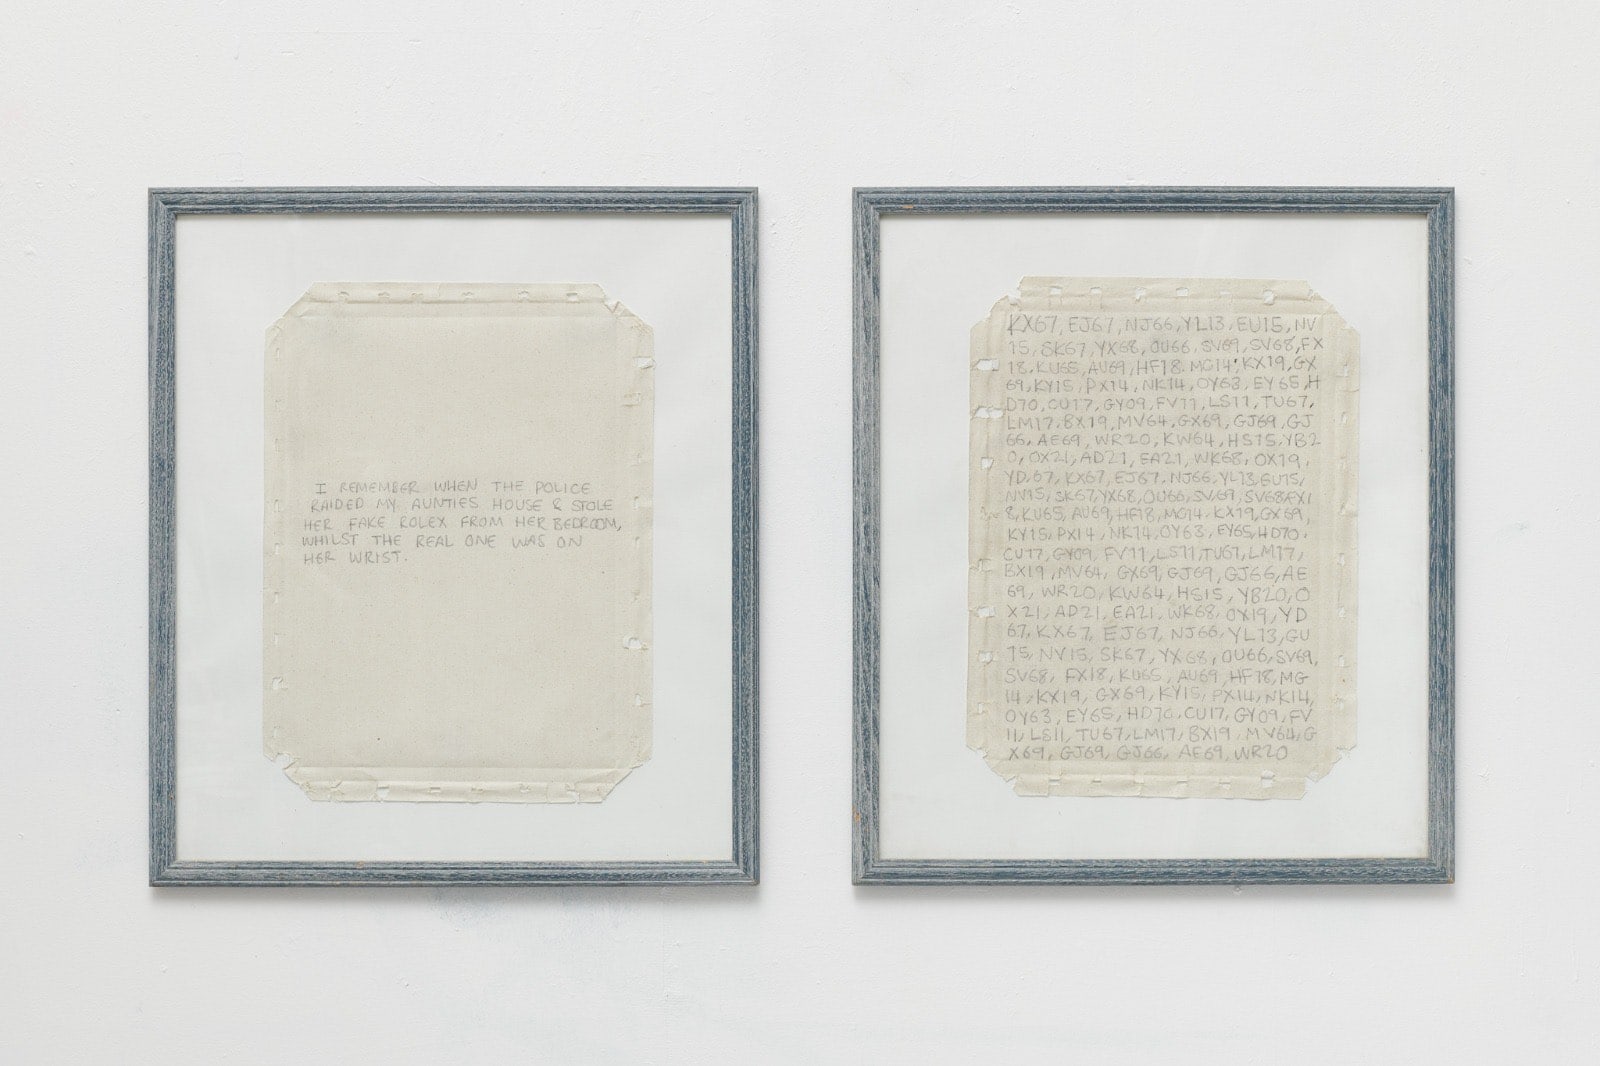 I REMEMBER WHEN THE POLICE
RAIDED MY AUNTIES HOUSE & STOLE
HER FAKE ROLEX FROM HER BEDROOM,
WHILST THE REAL ONE WAS ON
HER WRIST.
KX67, EJ67, NJ66, YL13, EU15, NV
15, SK67, YX68, OU66, SV69, SV68, FX
18, KU65, AU69, HF18, MG14, KX19, GX
69, KY15, PX14, NK14, OY63, EY65, H
D70, CU17, GY09, FV11, LS11, TU67,
LM17, BX19, MV64, GX69, GJ69, GJ
66, AE69, WR20, KW64, HS15, YB2
0, OX21, AD21, EA21, WK68, OX19,
YD67, KX67, EJ67, NJ66, YL13, EU15,
NV15, SK67, YX68, OU66, SV69, SV68, FX1
8, KU65, AU69, HF18, MG14, KX19, GX69,
KY15, PX14, NK14, OY63, EY65, HD70,
CU17, GY09, FV11, LS11, TU67, LM17,
BX19, MV64, GX69, GJ69, GJ66, AE
69, WR20, KW64, HS15, YB20, O
X21, AD21, EA21, WK68, OX19, YD
67, KX67, EJ67, NJ66, YL13, GU
15, NV15, SK67, YX68, OU66, SV69,
SV68, FX18, KU65, AU69, HF18, MG
14, KX19, GX69, KY15, PX14, NK14,
OY63, EY65, HD70, CU17, GY09, FV
11, LS11, TU67, LM17, BX19, MV64, G
X69, GJ69, GJ66, AE69, WR20